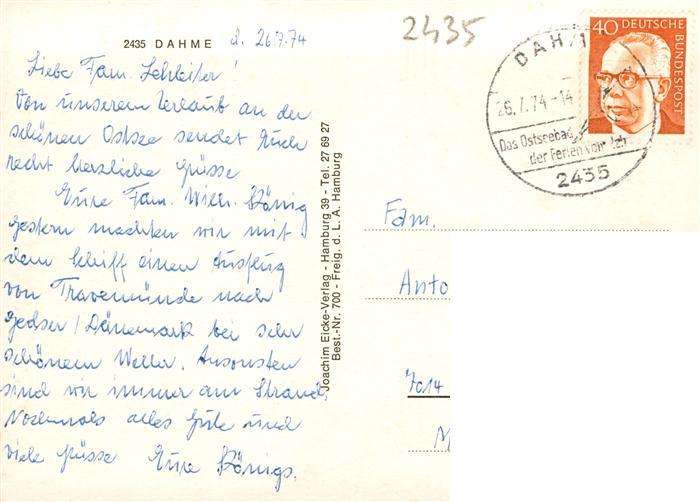 2435 DAHME d. 26.7.74
Liebe Fam. Schleifer!
Von unserem Urlaub an der
schönen Ostsee sendet Euch
recht herzliche Grüsse
Eure Fam. Wilh. König
Gestern machten wir mit
dem Schiff einen Ausflug
von Travemünde nach
Gedser / Dänemark bei sehr
schönem Wetter. Ansonsten
sind wir immer am Strand.
Nochmals alles Gute und
viele Grüsse Eure Königs.
Joachim Eicke-Verlag - Hamburg 39 - Tel. 27 69 27
Best.-Nr. 700 - Freig. d. L. A. Hamburg
2435
40 DEUTSCHE
BUNDESPOST
DAHM
26.7.74-14
Das Ostseebad
der Ferien
2435
Fam.
Anto
7014